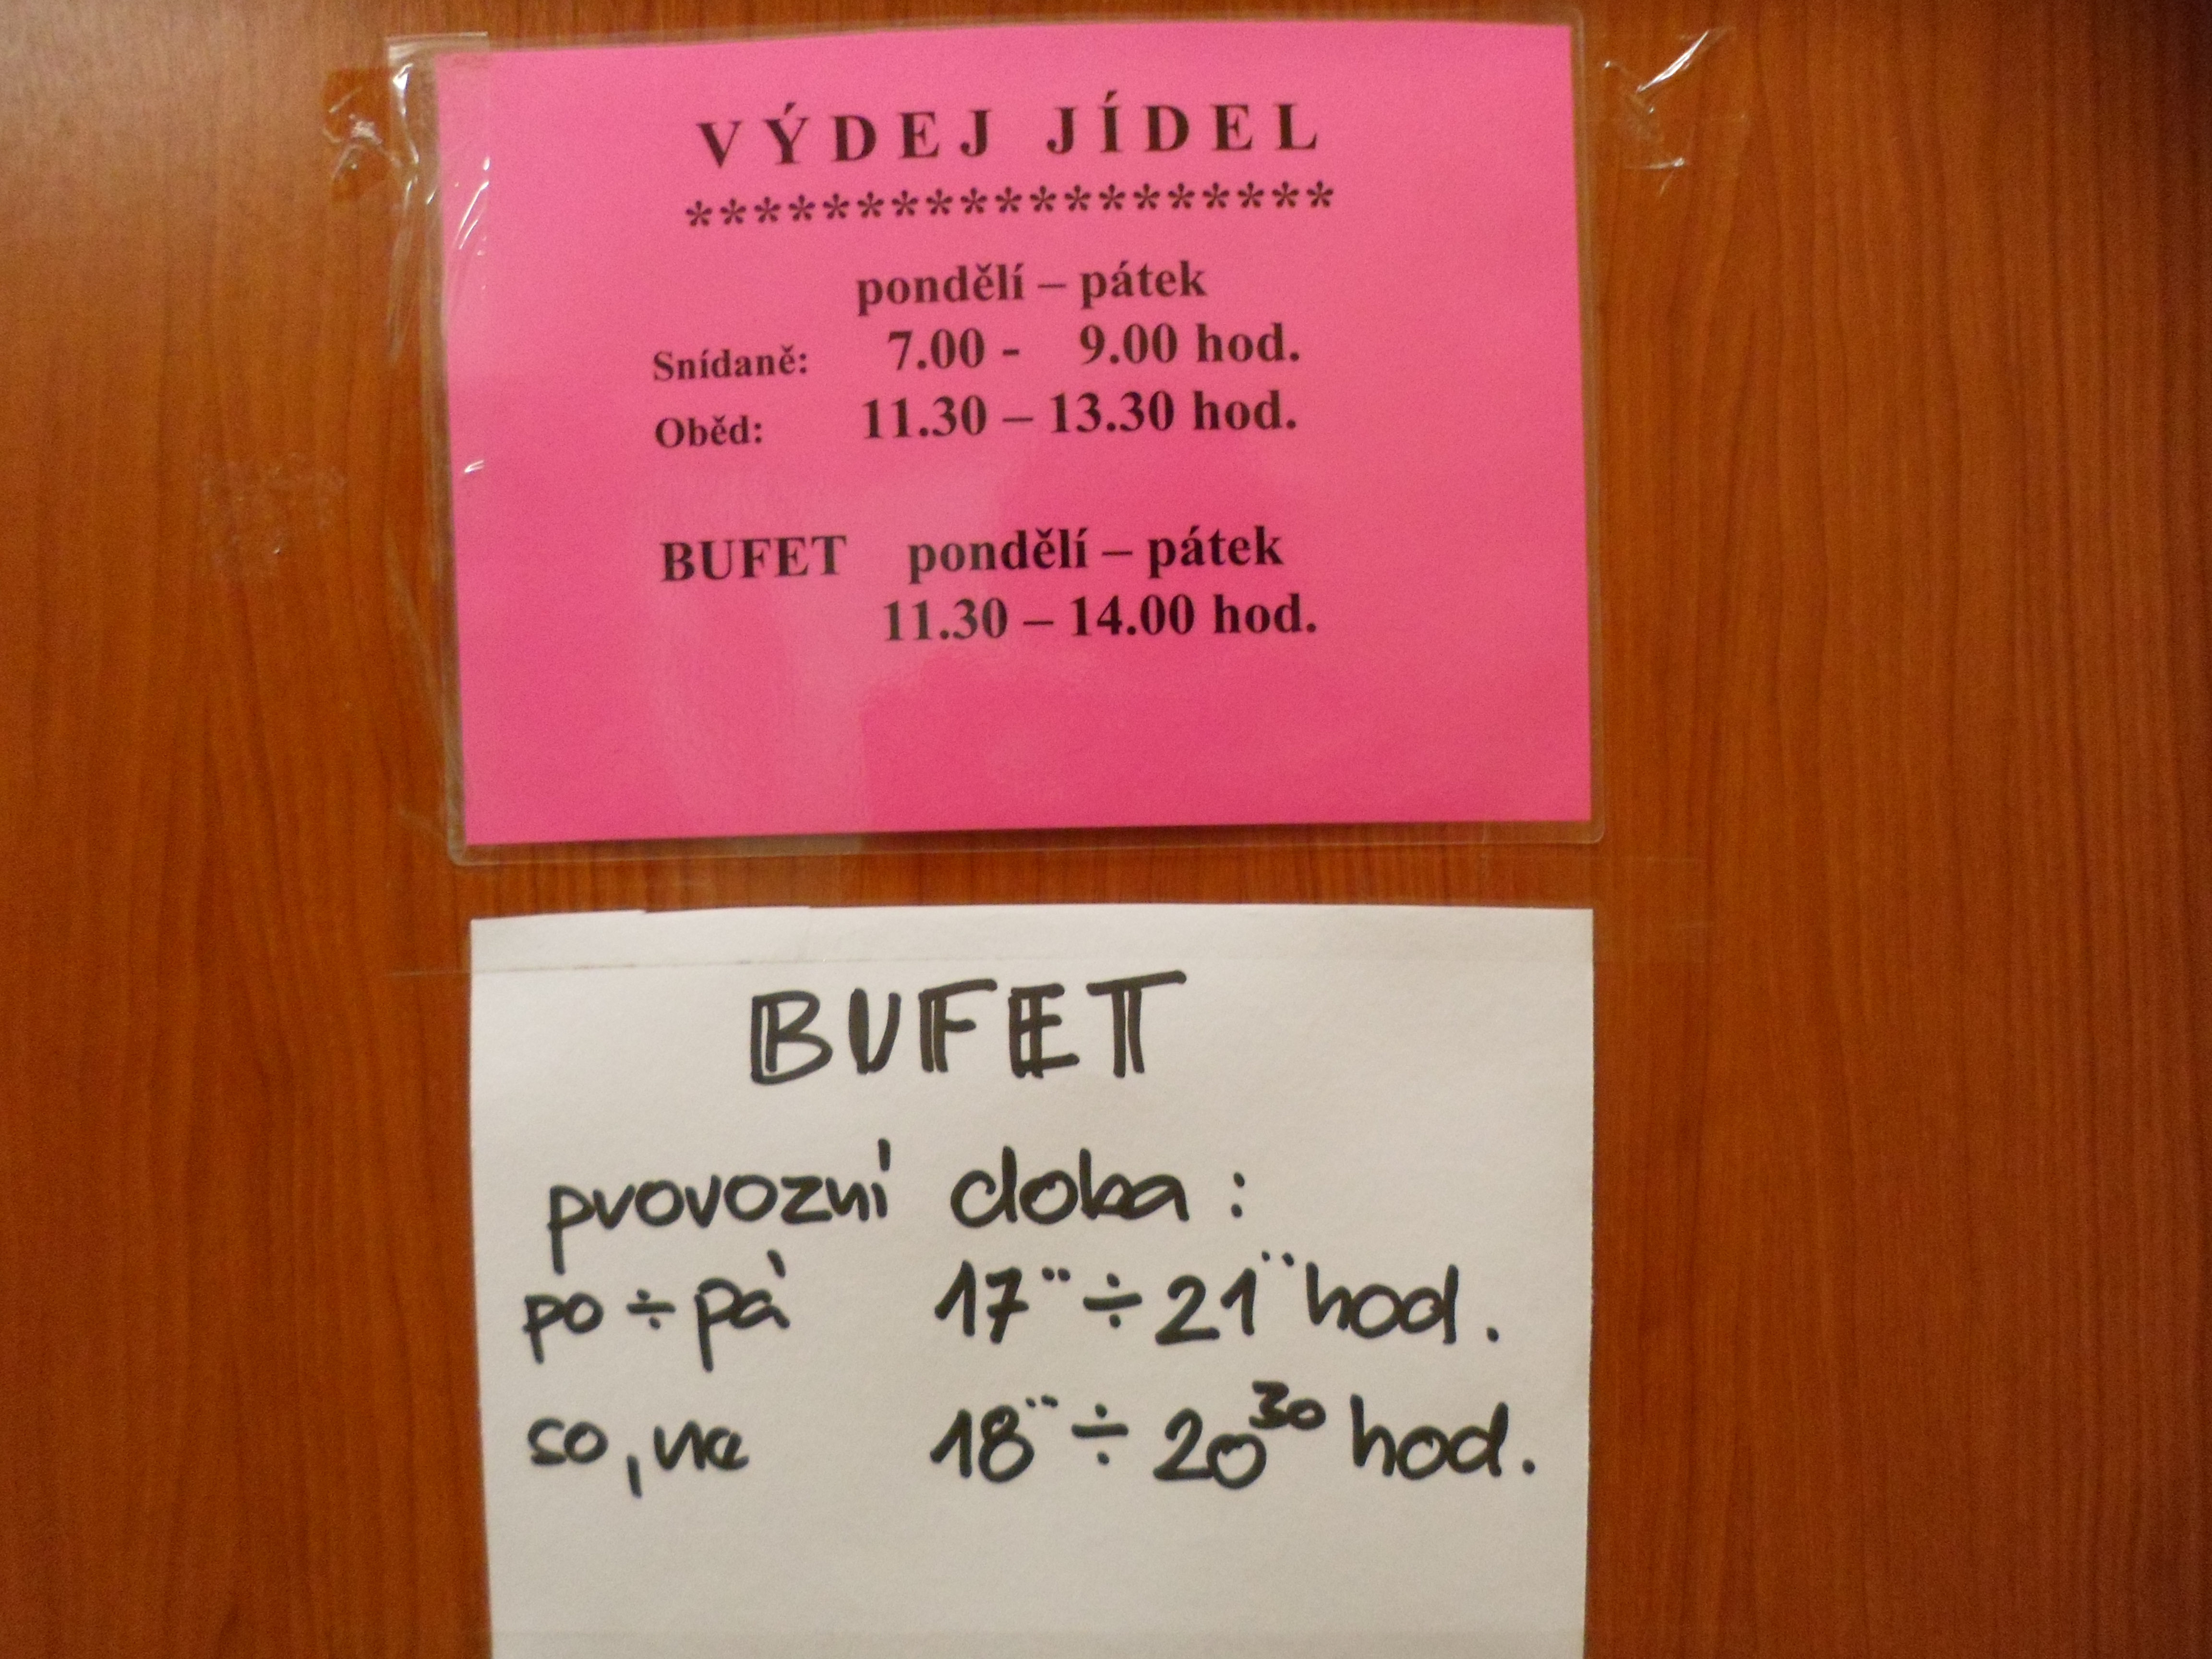 VÝDEJ JÍDEL
*******************
pondělí – pátek
Snídaně: 7.00 - 9.00 hod.
Oběd: 11.30 – 13.30 hod.
BUFET pondělí – pátek
11.30 – 14.00 hod.
BUFET
provozní doba:
po ÷ pá 17¨ ÷ 21¨ hod.
so, ne 18¨ ÷ 20³⁰ hod.